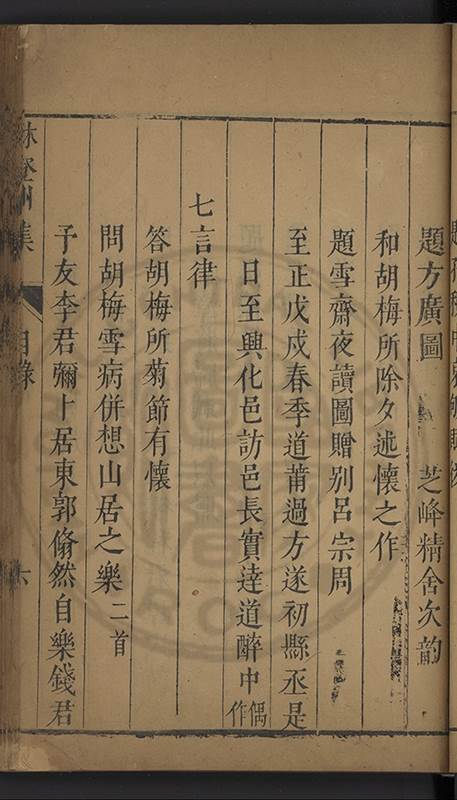 題方廣圖　芝峰精舍次韵
和胡梅所除夕述懷之作
題雪齋夜讀圖贈别呂宗周
至正戊戌春季道莆過方遂初縣丞是
日至興化邑訪邑長實達道醉中偶作
七言律
答胡梅所菊節有懷
問胡梅雪病併想山居之樂二首
予友李君彌卜居東郭翛然自樂錢君
林登州集　目錄　六